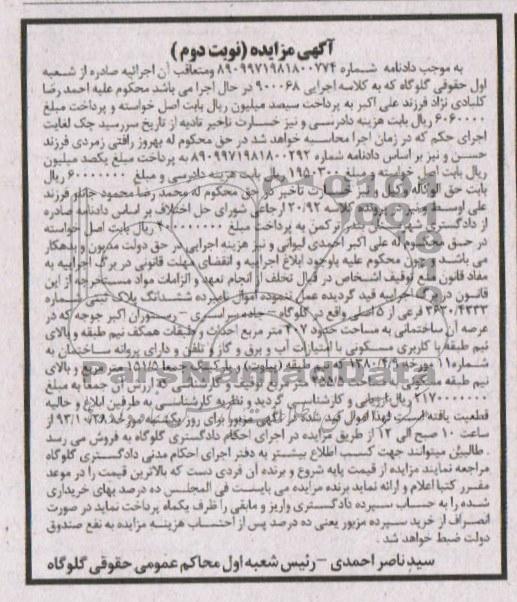 آگهی مزایده (نوبت دوم)
به موجب دادنامه شماره ۸۹۰۹۹۷۱۹۸۱۸۰۰۷۷۴ ومتعاقب آن اجرائیه صادره از شعبه
اول حقوقی گلوگاه که به کلاسه اجرایی ۹۰۰۰۶۸ در حال اجرا می باشد محکوم علیه احمد رضا
کلبادی نژاد فرزند علی اکبر به پرداخت سیصد میلیون ریال بابت اصل خواسته و پرداخت مبلغ
۶۰۶۰۰۰۰ ریال بابت هزینه دادرسی و نیز خسارت تاخیر تادیه از تاریخ سررسید چک لغایت
اجرای حکم که در زمان اجرا محاسبه خواهد شد در حق محکوم له بهروز رافتی زمردی فرزند
حسن و نیز بر اساس دادنامه شماره ۸۹۰۹۹۷۱۹۸۱۸۰۰۲۹۲ به پرداخت مبلغ یکصد میلیون
ریال بابت اصل خواسته و مبلغ ۱۹۵۰۳۰۰ ریال بابت هزینه دادرسی و مبلغ ۶۰۰۰۰۰۰ ریال
بابت حق الوکاله وکیل و خسارت تاخیر در حق محکوم له محمد رضا محمود جانلو فرزند
علی اوسط و نیز پرونده کلاسه ۳۰/۹۲ ارجاعی شورای حل اختلاف بر اساس دادنامه صادره
از دادگستری شهرستان بندر ترکمن به پرداخت مبلغ ریال بابت اصل خواسته
در حق محکوم له علی اکبر احمدی لیوانی و نیز هزینه اجرایی در حق دولت مدیون و بدهکار
می باشد و چون محکوم علیه باوجود ابلاغ اجراییه و انقضای مهلت قانونی در برگ اجراییه به
مفاد قانون منع توقیف اشخاص در قبال تخلف از انجام تعهد و الزامات مواد مستخرجه از این
قانون در برگ اجراییه قید گردیده عمل ننموده اموال نامبرده ششدانگ پلاک ثبتی شماره
۳۶۳۰/۴۳۳۳ فرعی از ۵ اصلی واقع در گلوگاه - جاده سراسری - رستوران اکبر جوجه که در
عرصه آن ساختمانی به مساحت حدود ۴۰۷ متر مربع احداث و طبقات همکف نیم طبقه و بالای
نیم طبقه با کاربری مسکونی با امتیازات آب و برق و گاز و تلفن و دارای پروانه ساختمان به
شماره ۱۱ مورخه طبقه (پیلوت) و پارکینگ جمعا ۱۵۱/۵ متر مربع و بالای
نیم طبقه مسکونی متر مربع
۲۱۷۰۰۰۰۰۰۰ ریال ارزیابی و کارشناسی گردید و نظریه کارشناسی به طرفین ابلاغ و حالیه
قطعیت یافته است لهذا اموال قید شده در آگهی مزبور برای روز یکشنبه مورخه
ساعت ۱۰ صبح الی ۱۲ از طریق مزایده در اجرای احکام دادگستری گلوگاه به فروش می رسد
. طالبین میتوانند جهت کسب اطلاع بیشتر به دفتر اجرای احکام مدنی دادگستری گلوگاه
مراجعه نمایند مزایده از قیمت پایه شروع و برنده آن فردی است که بالاترین قیمت را در موعد
مقرر کتبا اعلام و ارائه نماید برنده مزایده می بایست فی المجلس ده درصد بهای خریداری
شده را به حساب سپرده دادگستری واریز و مابقی را ظرف یکماه پرداخت نماید در صورت
انصراف از خرید سپرده مزبور یعنی ده درصد پس از احتساب هزینه مزایده به نفع صندوق
دولت ضبط خواهد شد .
سید ناصر احمدی - رئیس شعبه اول محاکم عمومی حقوقی گلوگاه